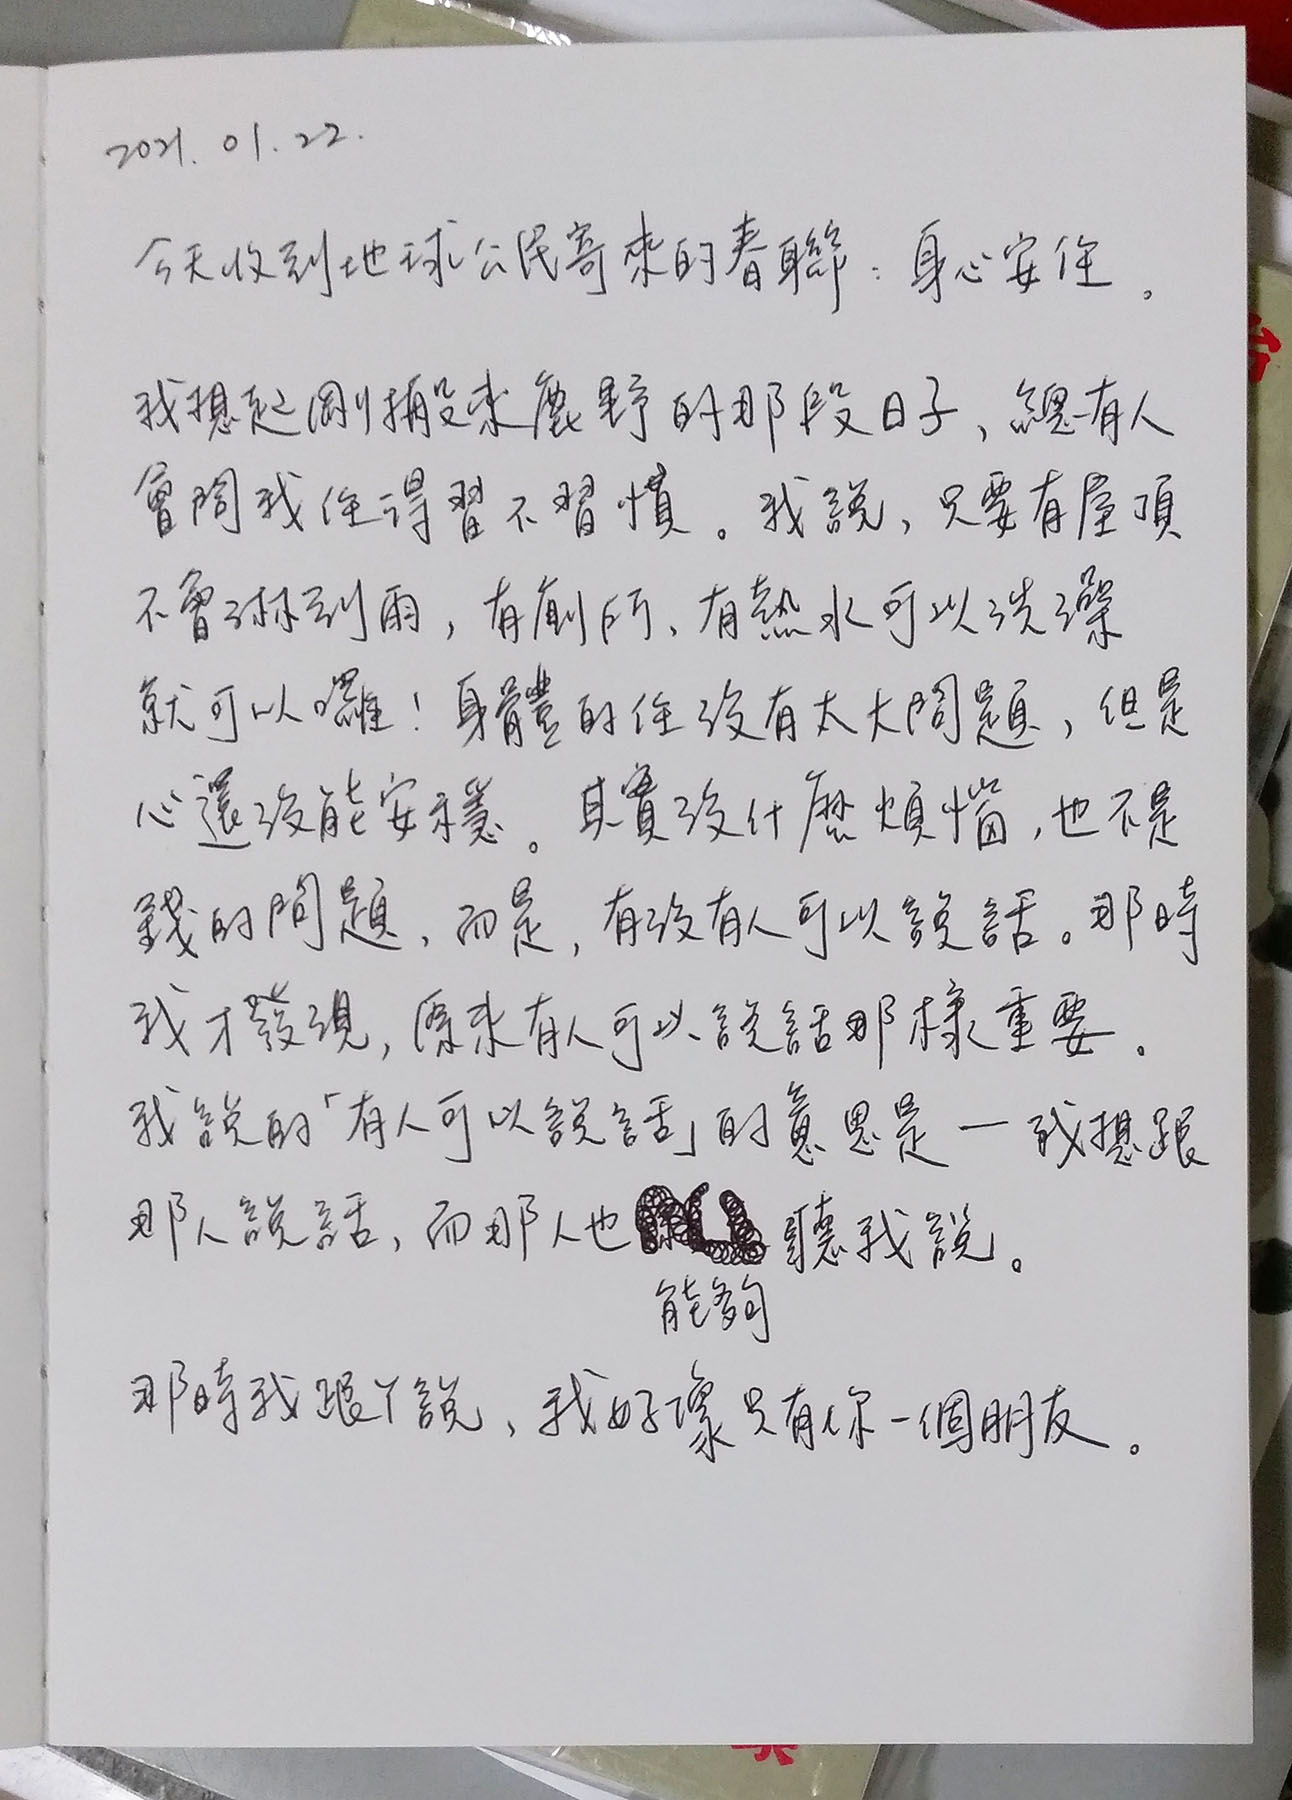 2021.01.22.
今天收到地球公民寄來的春聯：身心安住。
我想起剛搬來鹿野的那段日子、總有人
會問我住得習不習慣。我說，只要有屋頂
不會淋到雨，有廁所、有熱水可以洗澡
就可以囉！身體的住沒有太大問題，但是
心還沒能安穩。其實沒什麼煩惱，也不是
錢的問題，而是，有沒有人可以說話。那時
我才發現，原來有人可以說話那樣重要。
我說的「有人可以說話」的意思是—我想跟
那人說話，而那人也 聽我說。
能夠
那時我跟丫說，我好像只有你一個朋友。